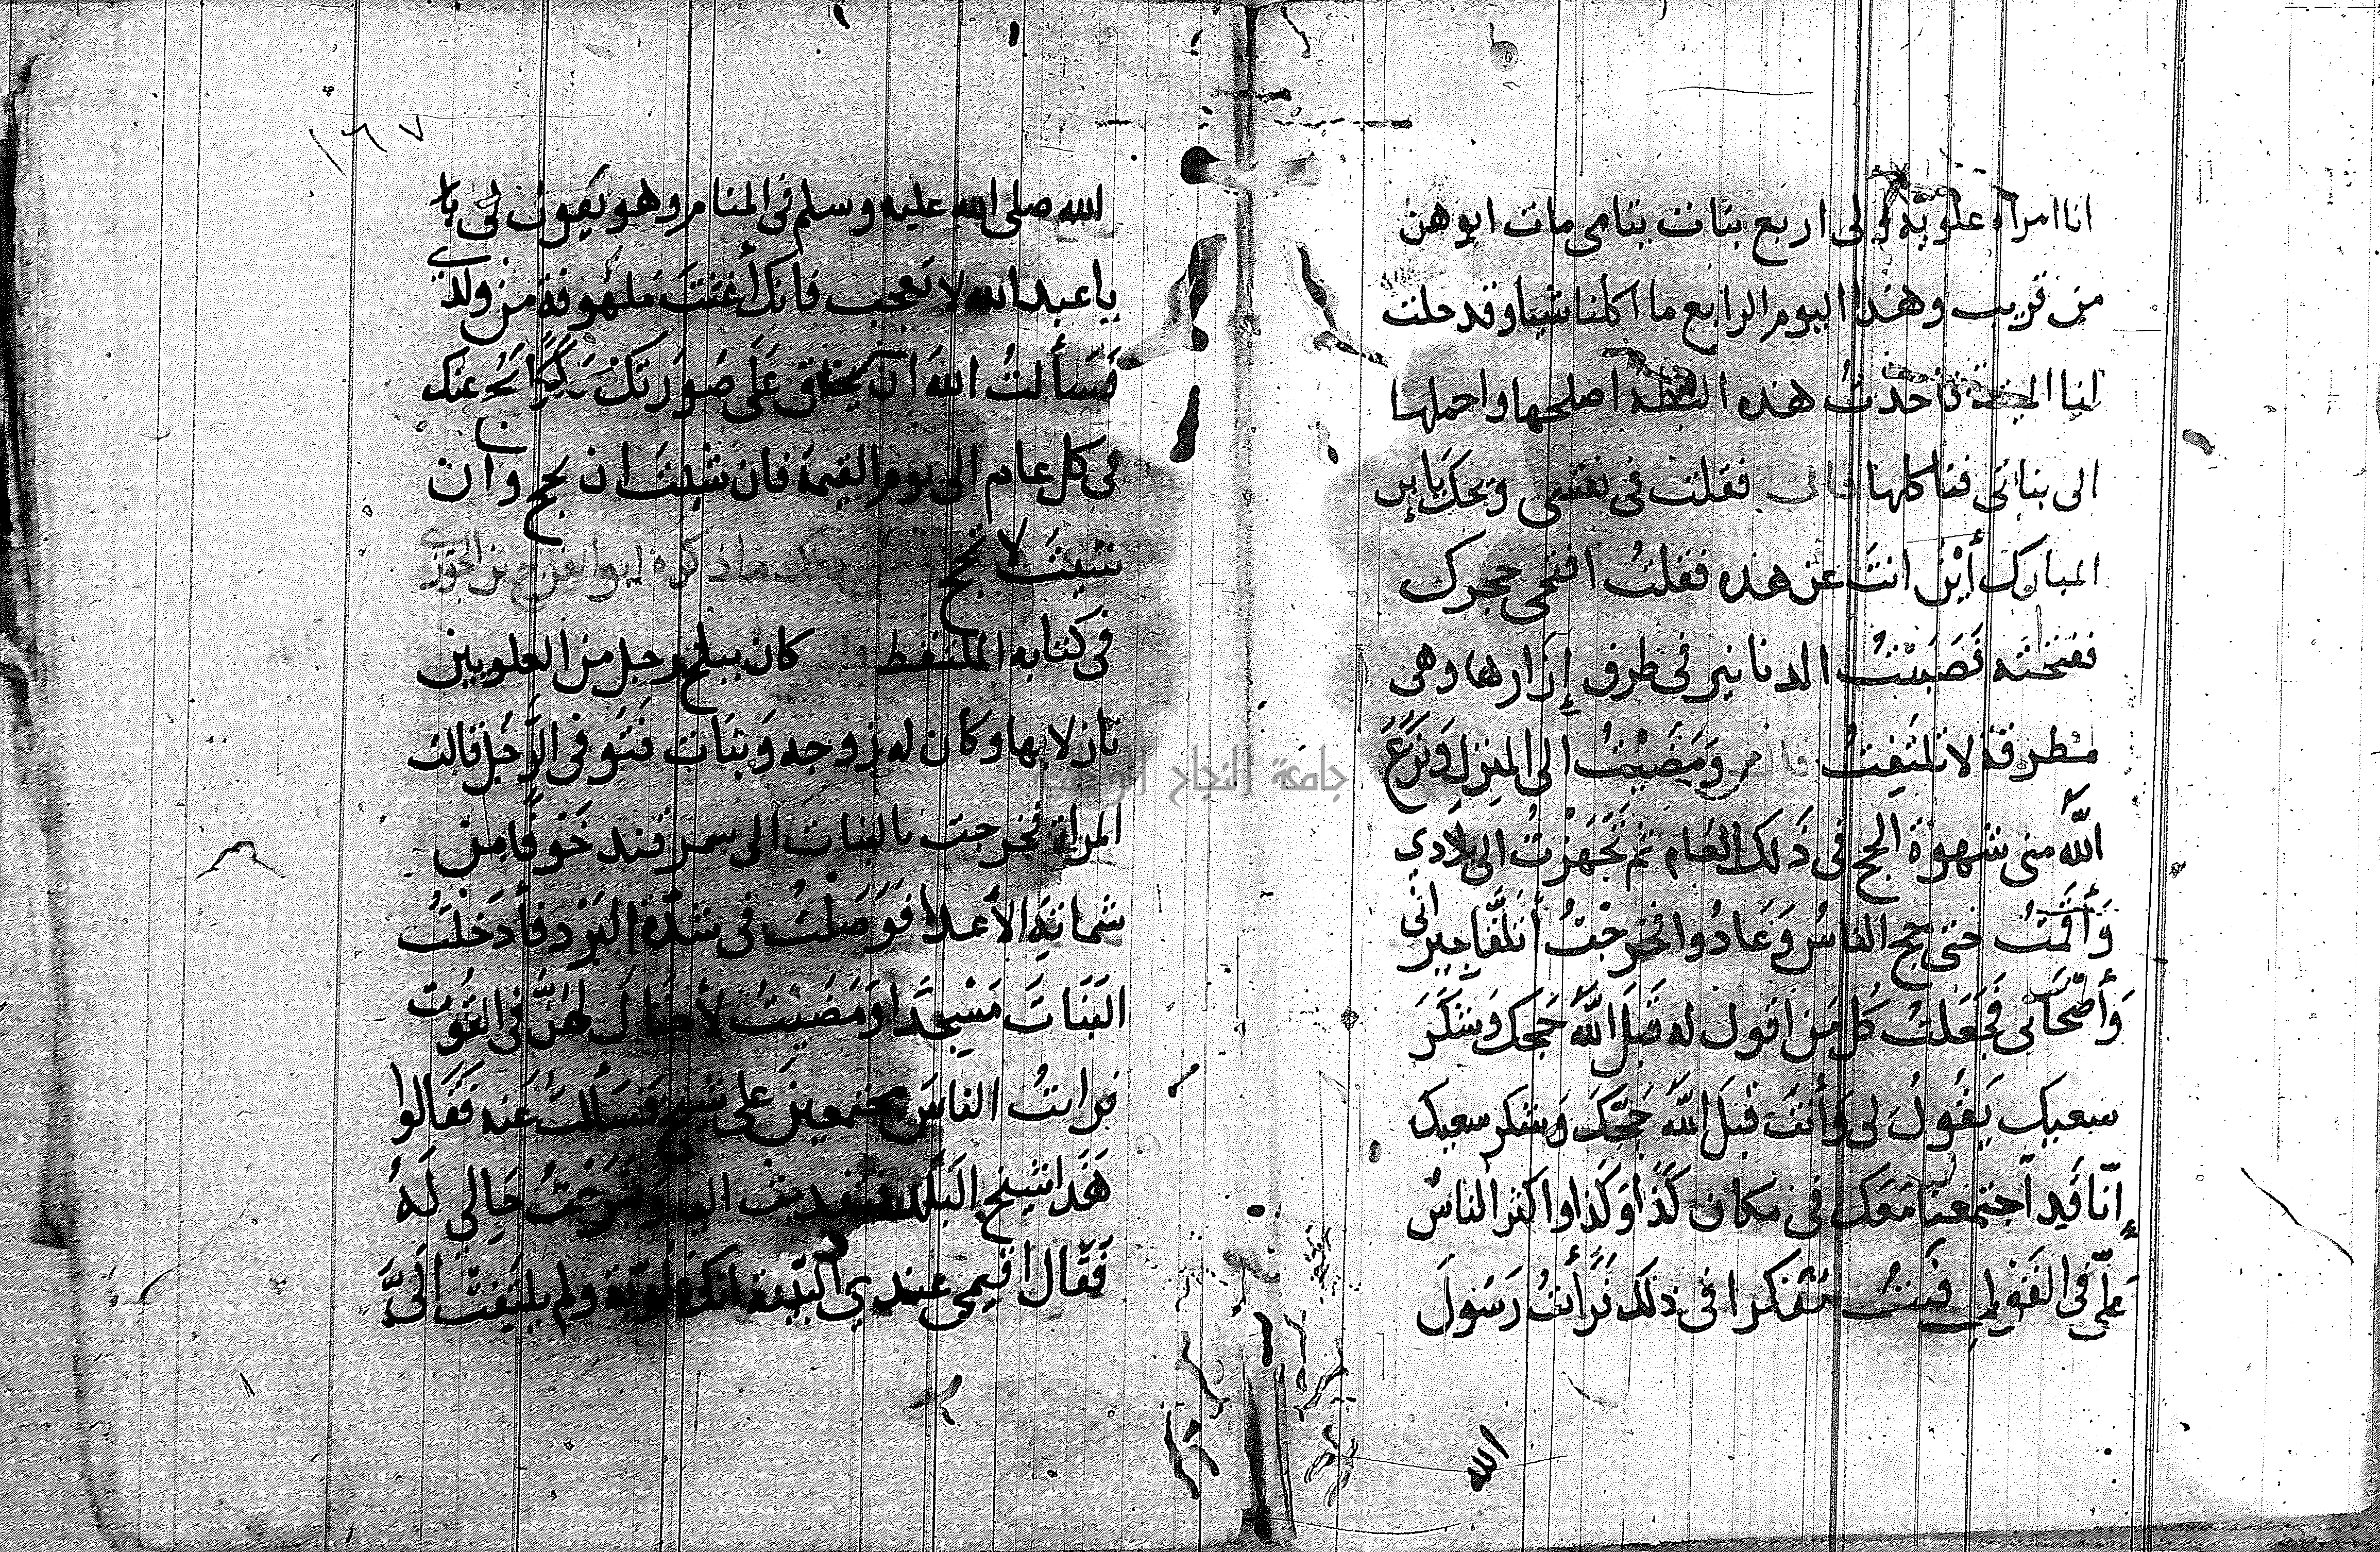 انا امراة علوية ولى اربع بنات يتامى مات ابوهن
من قريب وهذا اليوم الرابع ما اكلنا شيا وقد حلت
لنا الميتة فاخذت هذه البطه اصلحها واحملها
الى بناتى فناكلها قال فقلت فى نفسى ويحك يا بن
المبارك أين انت عن هذه فقلت افتحى حجرك
ففتحته فصببت الدنانير فى طرف إزارها وهى
مطرقة لا تلتفت قال ومضيت الى المنزل ونزع
الله منى شهوة الحج فى ذلك العام ثم تجهزت الى بلادي
وأقمت حتى حج الناس وعادوا فخرجت أتلقا جيرانى
وأصحابى فجعلت كل من اقول له قبل الله حجك وشكر
سعيك يقول لى وأنت قبل الله حجك وشكر سعيك
إنا قد اجتمعنا معك فى مكان كذا وكذا واكثر الناس
علي في القول فبت متفكرا فى ذلك فرأيت رسول
الله
١٦٧
الله صلى الله عليه وسلم فى المنام وهو يقول لى يا
يا عبد الله لا تعجب فانك أغثت ملهوفة من ولدي
فسألت الله ان يخلق على صورتك ملكا يحج عنك
فى كل عام الى يوم القيمة فان شيت ان تحج وان
شيت لا تحج ما ذكره ابو الفرج بن الجوزي
فى كتابه الملتقط قال كان ببلخ رجل من العلويين
نازلا بها وكان له زوجه وبنات فتوفى الرجل قالت
المراة فخرجت بالبنات الى سمرقند خوفا من
شماتة الأعدا فوصلت فى شدة البرد فأدخلت
البنات مسجدا ومضيت لأحتال لهن فى القوت
فرايت الناس مجتمعين على شيخ فسألت عنه فقالوا
هذا شيخ البلد فتقدمت اليه وشرحت حالي له
فقال اقيمى عندي البينة انك علوية ولم يلتفت الىّ
جامعة النجاح الوطنية